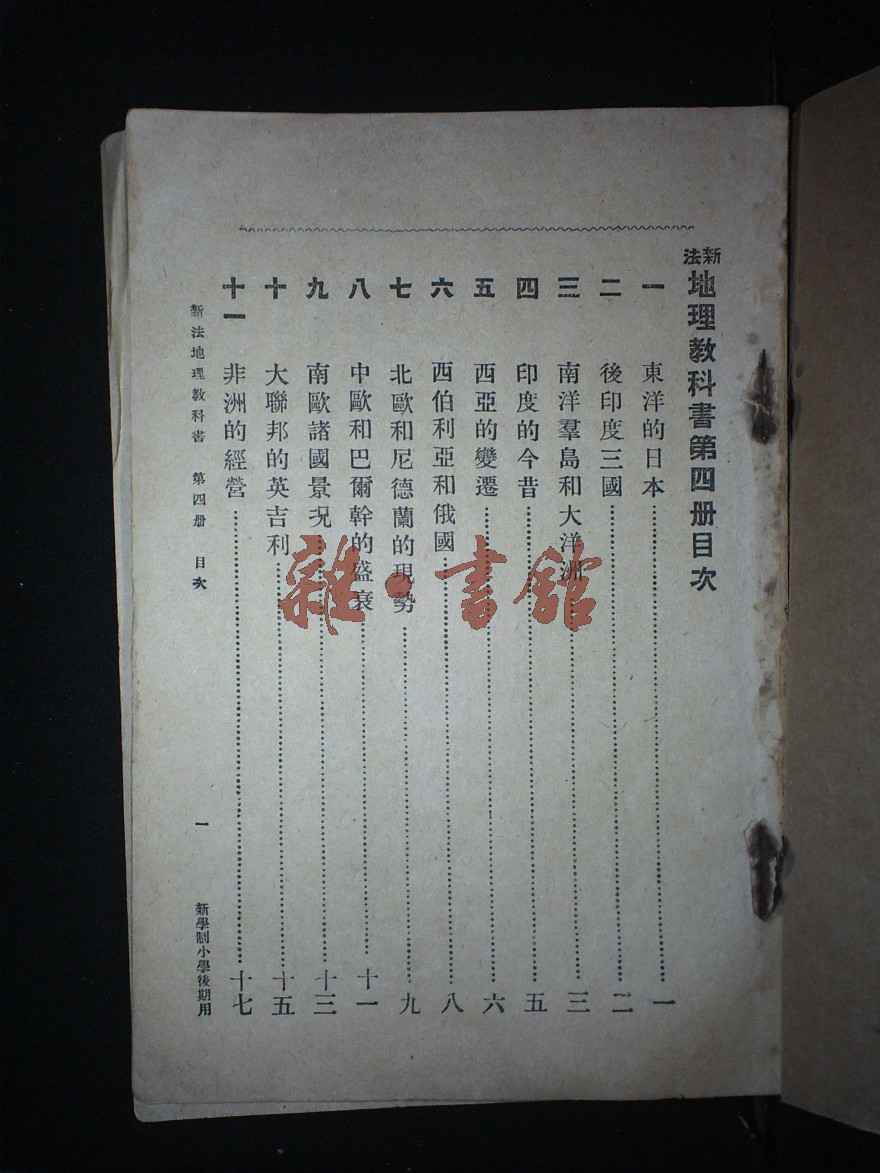 新法地理教科書第四册目次
一 東洋的日本 一
二 後印度三國 二
三 南洋羣島和大洋洲 三
四 印度的今昔 五
五 西亞的變遷 六
六 西伯利亞和俄國 八
七 北歐和尼德蘭的現勢 九
八 中歐和巴爾幹的盛衰 十一
九 南歐諸國景況 十三
十 大聯邦的英吉利 十五
十一 非洲的經營 十七
新法地理教科書 第四册 目次 一 新學制小學後期用
雜·書館